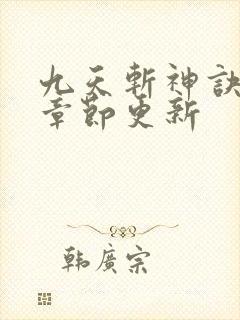 九天斬神訣
章節更新
韓廣宗